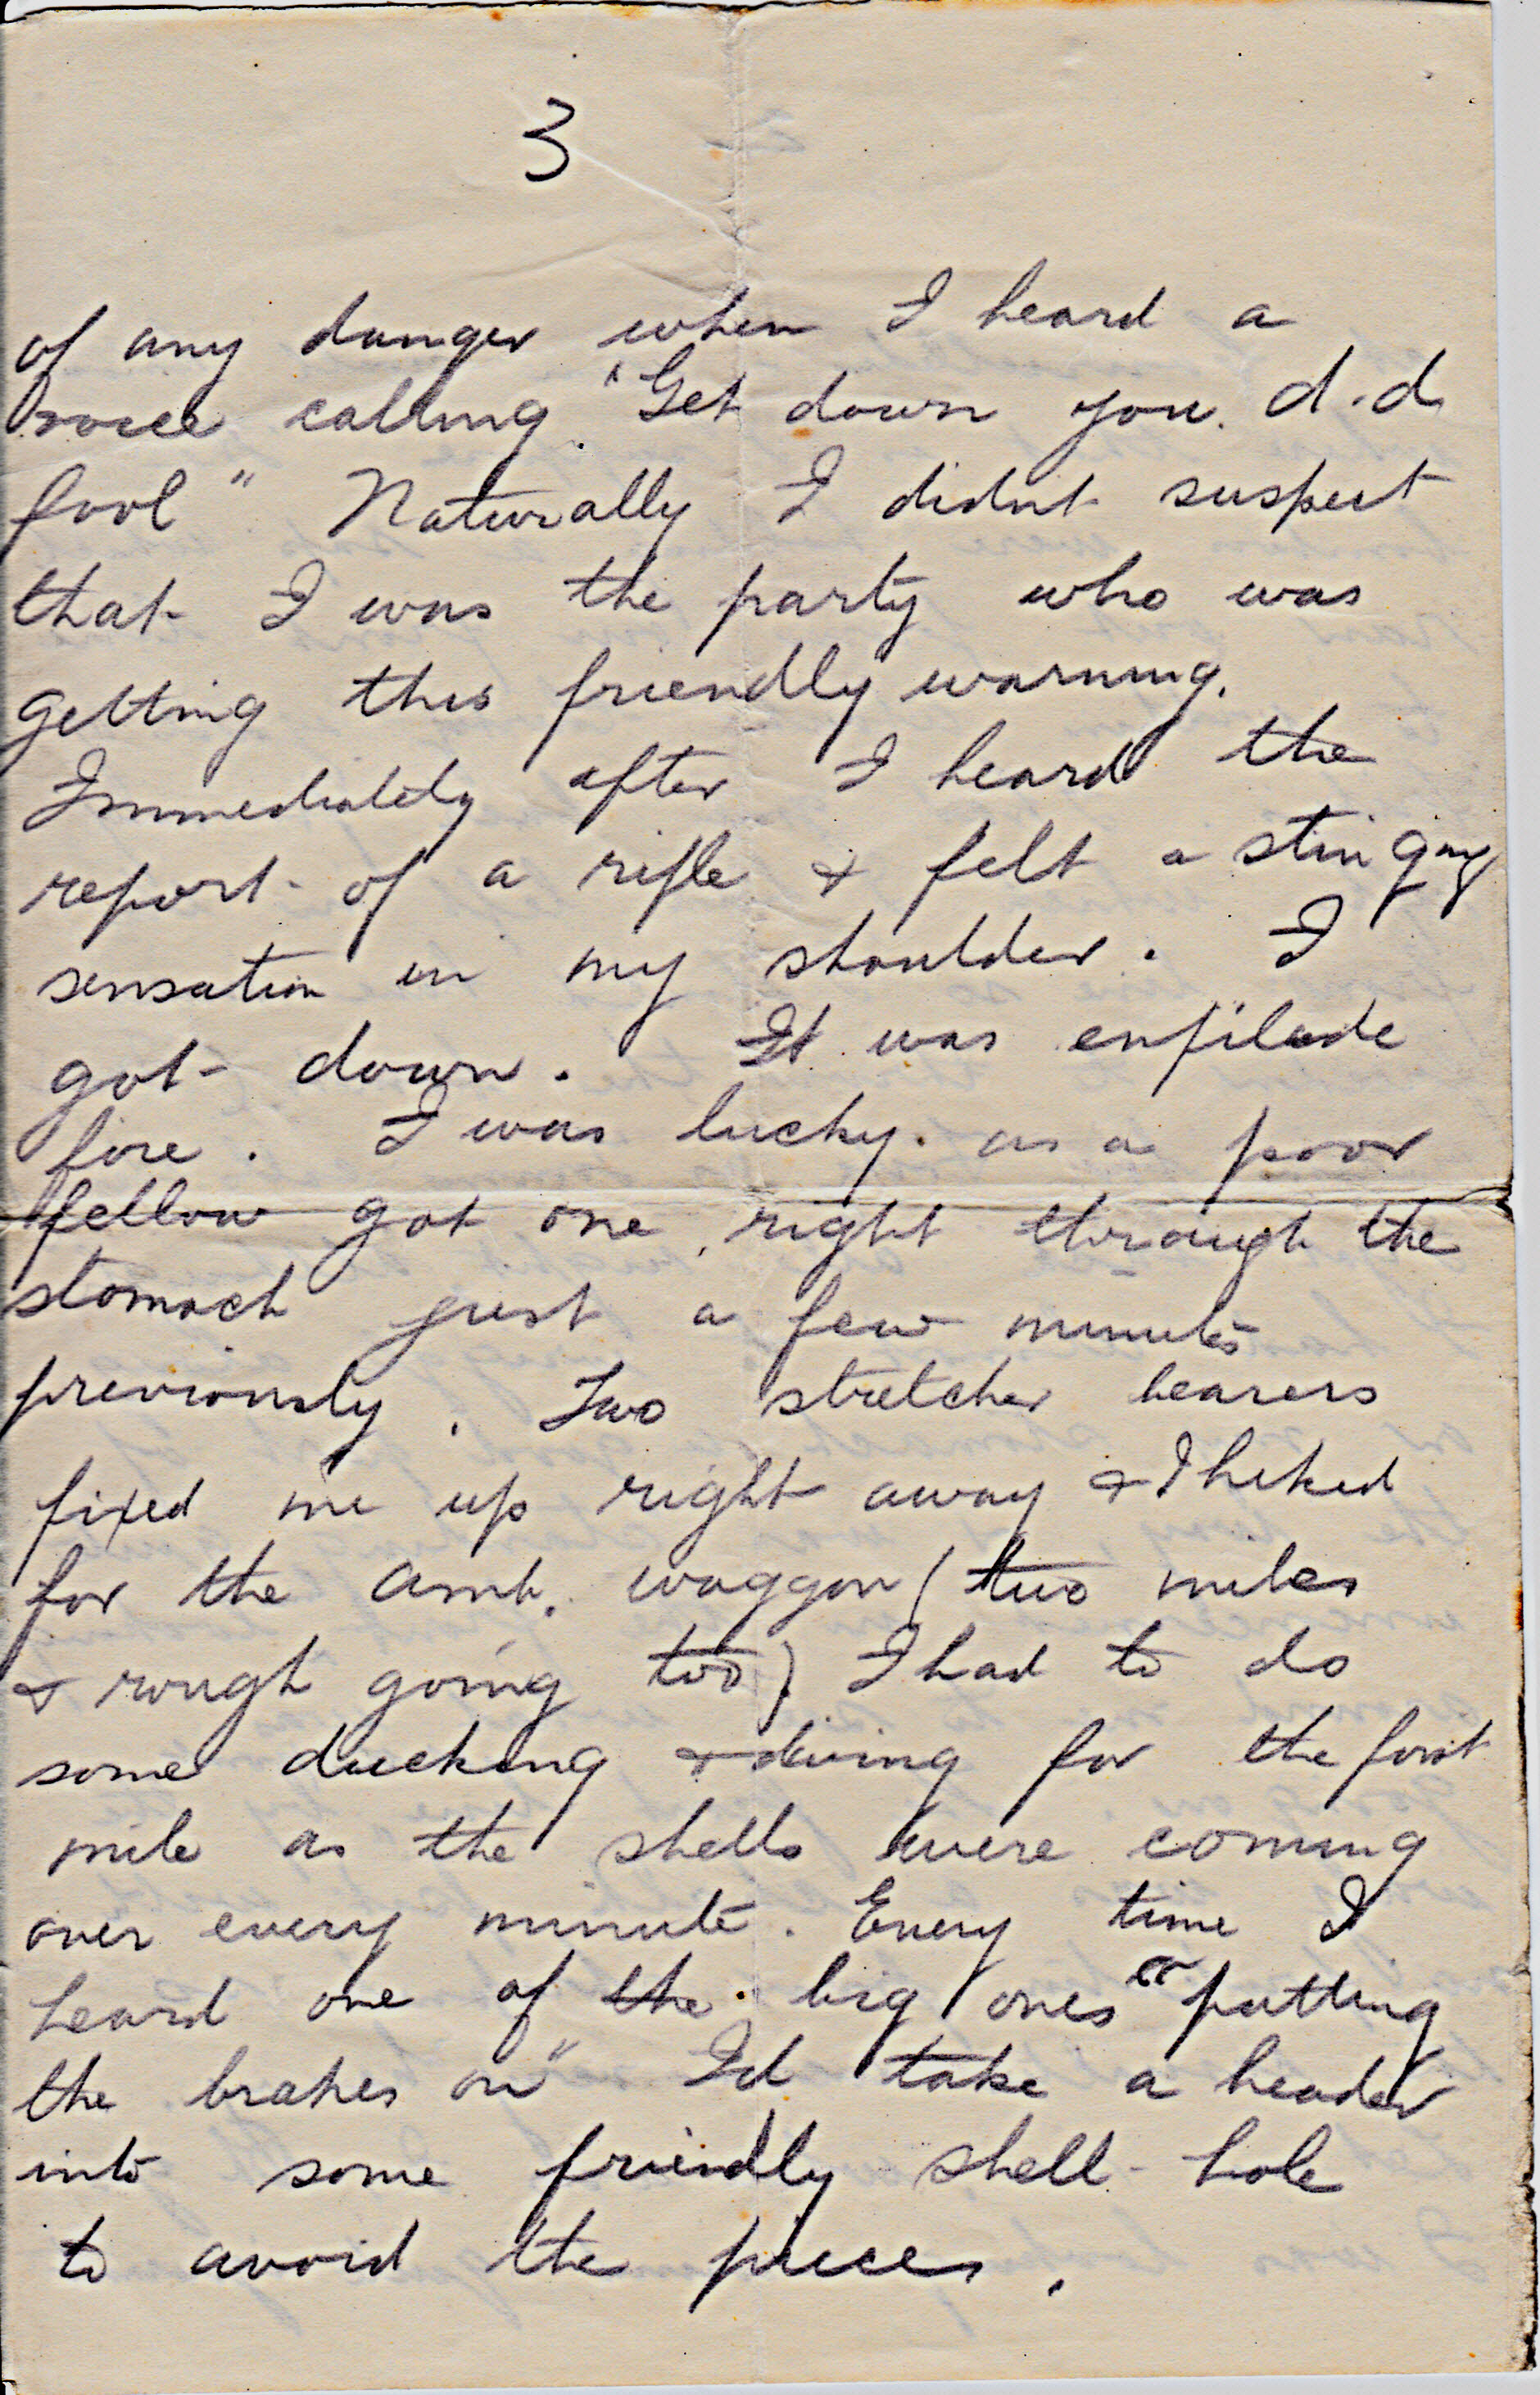 3
of any danger when I heard a
voice calling "Get down you d.d
fool" Naturally I didnt suspect
that I was the party who was
getting this friendly warning.
Immediately after I heard the
report of a rifle & felt a stinging
sensation in my shoulder. I
got down. It was enfilade
fire. I was lucky. as a poor
fellow got one right through the
stomach just a few minutes
previously. Two stretcher bearers
fixed me up right away & I hiked
for the amb. waggon (two miles
& rough going too) I had to do
some ducking & diving for the first
mile as the shells were coming
over every minute. Every time I
heard one of the big ones "putting
the brakes on" I'd take a header
into some friendly shell-hole
to avoid the pieces.